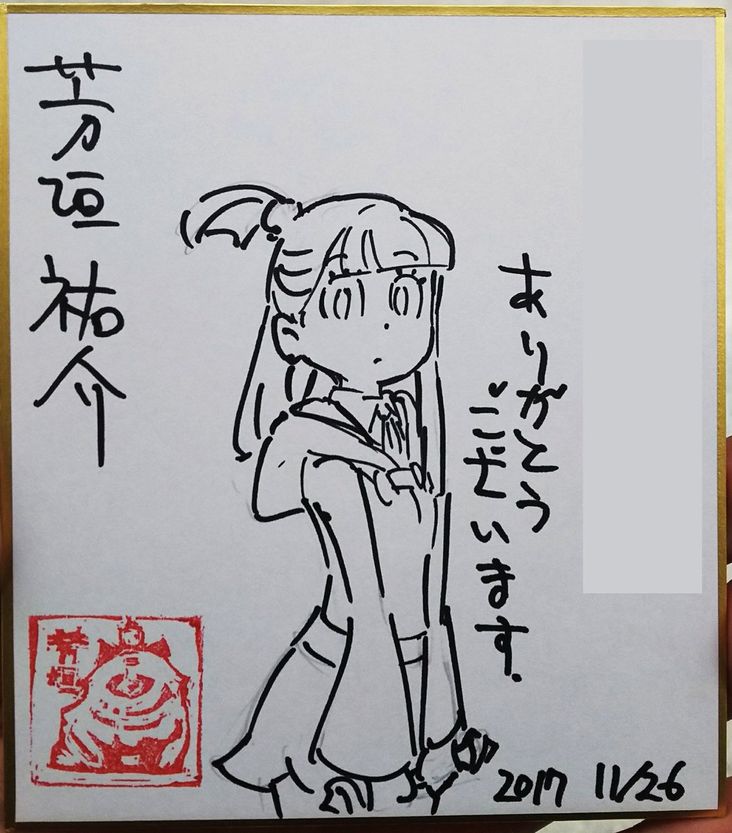 ありがとう
ございます.
芳垣祐介
芳垣
2017 11/26